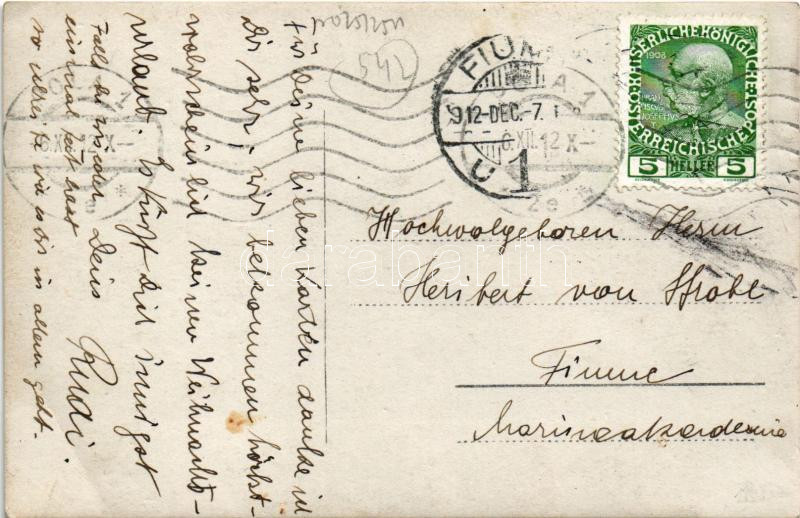 Für deine lieben Karten danke ich
Dir sehr, wir bekommen höchst-
wahrscheinlich keinen Weihnachts-
urlaub. Es küsst Dich innigst
Dein
Rudi.
Falls du wieder
einmal Zeit hast
so schreibe wie es dir in allem geht.
542
FIUME
912-DEC.-7.
6.XII.12 X-
1
2e
1908
KAISERLICHE KÖNIGLICHE
ÖSTERREICHISCHE POST
5 HELLER 5
Hochwolgeboren Herrn
Heribert von Strobl
Fiume
Marineakademie
darabanth